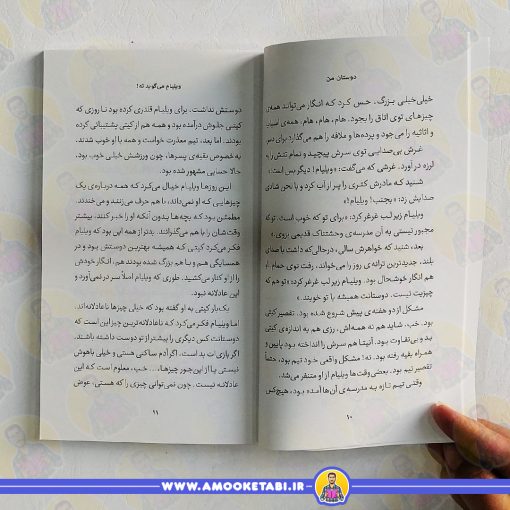 دوستان من
خیلی‌خیلی بزرگ. حس کرد که انگار می‌تواند همه‌ی
چیزهای توی اتاق را بجود. هام، هام، هام. همه‌ی اسباب
و اثاثیه را می‌جود و پرده‌ها و ملافه را هم می‌گذارد برای دسر.
غرش بی‌صدایی توی سرش پیچید و تمام تنش را به
لرزه درآورد. غرشی که می‌گفت: «ویلیام! دیگر بس است.»
شنید که مادرش کتری را پر از آب کرد و با لحن شادی
صدایش زد: «بجنب! ویلیام!»
ویلیام زیر لب غرغر کرد: «برای تو که خوب است. تو که
مجبور نیستی به آن مدرسه‌ی وحشتناک قدیمی بروی.»
بعد، شنید که خواهرش سالی، درحالی‌که داشت با صدای
بلند، جدیدترین ترانه‌ی روز را می‌خواند، رفت توی حمام. او
هم انگار خوشحال بود. ویلیام زیر لب غرغر کرد: «تو هم که
چیزیت نیست. دوستانت همیشه با تو خوبند.»
مشکل از دو هفته‌ی پیش شروع شده بود. تقصیر کیتی
بود. خب، شاید هم نه همه‌اش. رزی هم به اندازه‌ی کیتی
بد و بی‌تفاوت بود. آنیتا هم سرش را انداخته بود پایین و
همراه بقیه رفته بود. نه! مشکل واقعی خود تیم بود. حتماً
تقصیر تیم بود. بعضی‌وقت‌ها ویلیام از او متنفر می‌شد.
وقتی تیم تازه به مدرسه‌ی آن‌ها آمده بود، هیچ‌کس
۱۰
ویلیام می‌گوید نه!
دوستش نداشت. برای ویلیام قلدری کرده بود تا روزی که
کیتی جلوش درآمده بود و همه هم از کیتی پشتیبانی کرده
بودند. اما بعد، تیم معذرت خواست و همه با او خوب شدند.
به خصوص بقیه‌ی پسرها، چون ورزشش خیلی خوب بود.
حالا حسابی مشهور شده بود.
این روزها ویلیام خیال می‌کرد که همه درباره‌ی یک
چیزهایی که او نمی‌داند، با هم حرف می‌زنند و می‌خندند.
مطمئن بود که بچه‌ها بدون آنکه او را خبر کنند، بیشتر
وقت‌شان را با هم می‌گذرانند. بدتر از همه این بود که ویلیام
فکر می‌کرد کیتی که همیشه بهترین دوستش بود و در
همسایگی هم و با هم بزرگ شده بودند هم، انگار خودش
را از او کنار می‌کشید. طوری که ویلیام اصلاً سر در نمی‌آورد و
این عادلانه نبود.
یک‌بار کیتی به او گفته بود که خیلی چیزها ناعادلانه‌اند.
اما ویلیام فکر می‌کرد که ناعادلانه‌ترین چیز این است که
دوستانت کس دیگری را بیشتر از تو دوست داشته باشند.
اگر بازی‌ات بد است، اگر آدم ساکتی هستی و خیلی باهوش
نیستی یا از این‌جور چیزها... خب، معلوم است که این
عادلانه نیست. چون نمی‌توانی چیزی را که هستی، عوض
۱۱
WWW.AMOOKETABI.IR